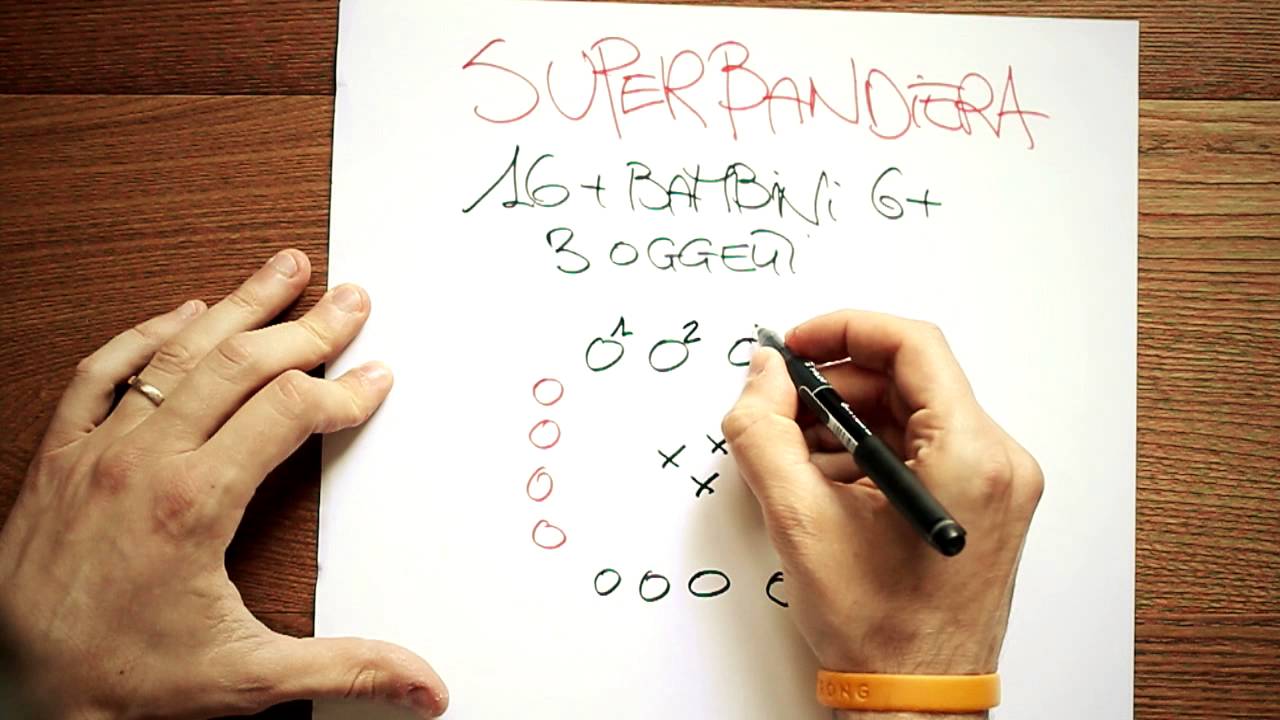 SUPERBANDIERA
16+ BAMBINI 6+
3 OGGETTI
1 2
RONG